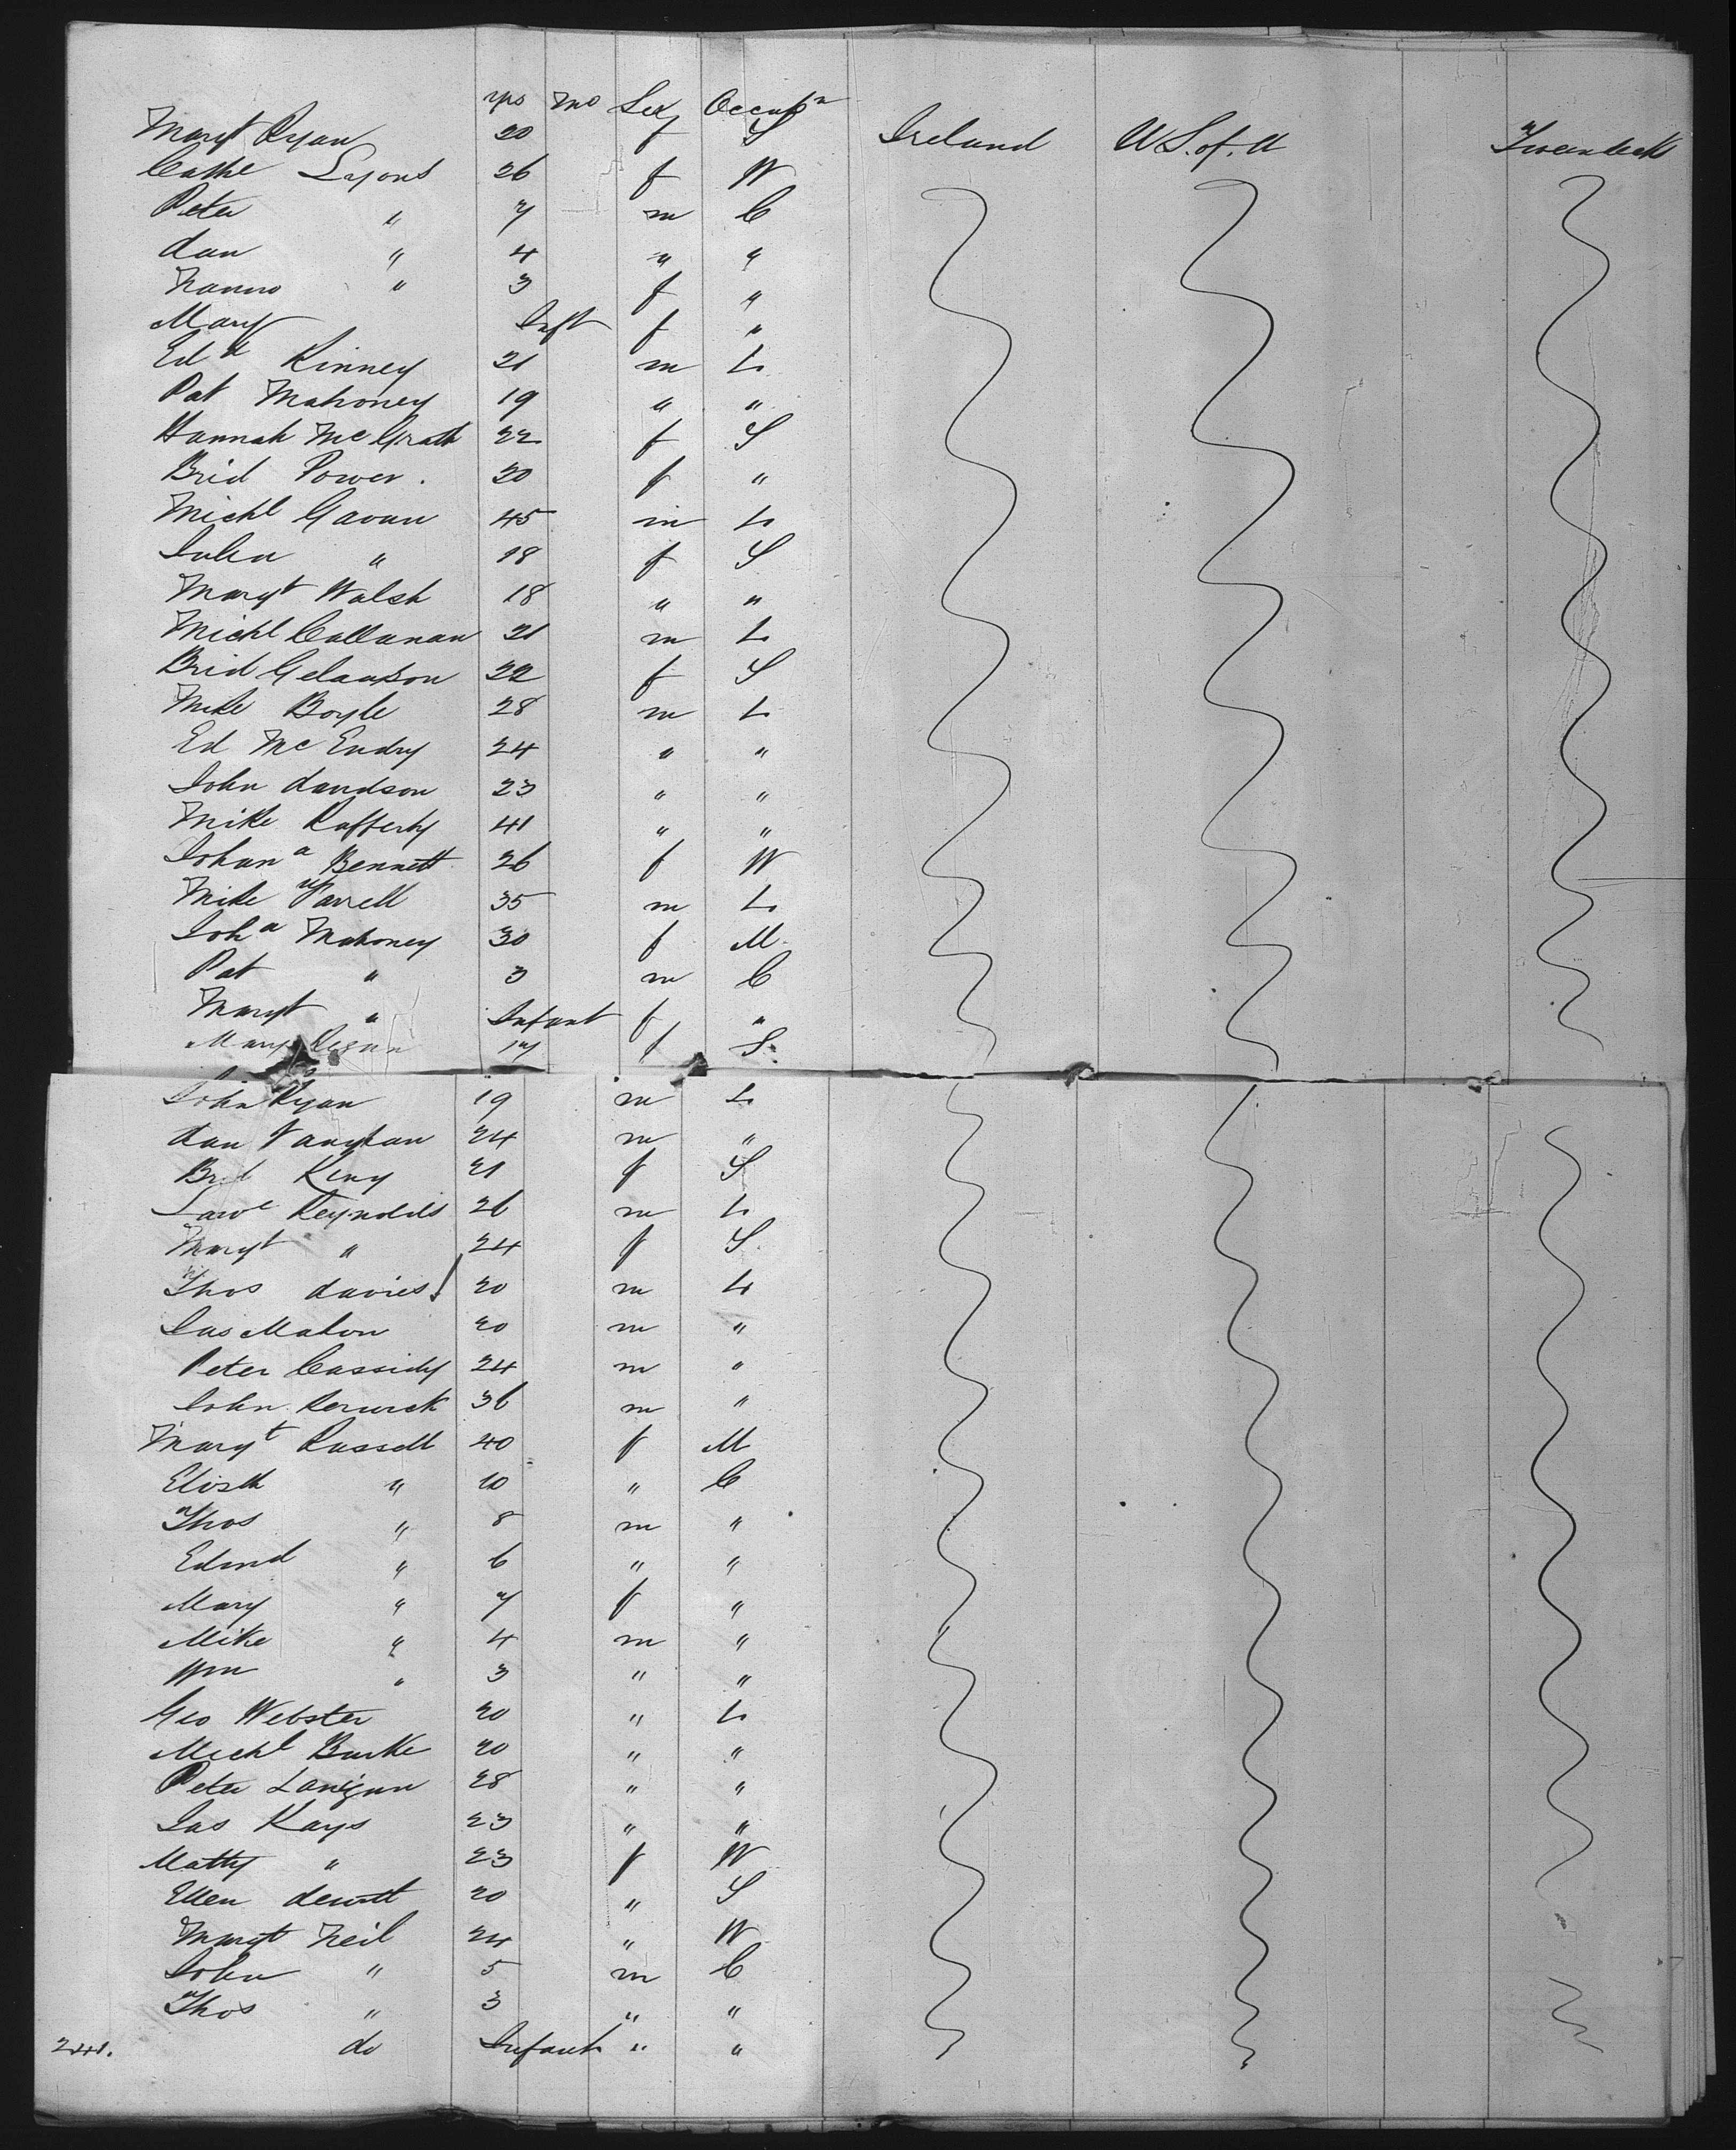 yrs mo Sex Occupn
Margt Ryan 20 f S Ireland U S. of. A Tweendeck
Cathe Lyons 26 f W
Peter " 7 m C
dan " 4 " "
Hanno " 3 f "
Mary Inft f "
Edd Kinney 21 m L
Pat Mahoney 19 " "
Hannah McGrath 22 f S
Brid Power. 20 f "
Michl Gavan 45 m L
Julia " 18 f S
Margt Walsh 18 " "
Michl Callanan 21 m L
Brid 22 f S
Mike Boyle 28 m L
Ed McEndry 24 " "
John davidson 23 " "
Mike Rafferty 41 " "
Johana Bennett 26 f W
Mike Farrell 35 m L
Joha Mahoney 30 f M
Pat " 3 m C
Margt " Infant f "
Mary 17 f S
John Ryan 19 m L
dan Vaughan 24 m "
Brid Keny 21 f S
Lawe Reynolds 26 m L
Margt " 24 f S
Thos davies 20 m L
Jas Mahon 20 m "
Peter Cassidy 24 m "
John Berwick 36 m "
Margt Russell 40 f M
Elizth " 10 " C
Thos " 8 m "
Edmd " 6 " "
Mary " 7 f "
Mike " 4 m "
Wm " 3 " "
Geo Webster 20 " L
Michl Burke 20 " "
Peter Lanigan 28 " "
Jas Kays 23 " "
Matty " 23 f W
Ellen dewitt 20 " S
Margt Neil 24 " W
John " 5 m C
Thos " 3 " "
241. do Infant " "